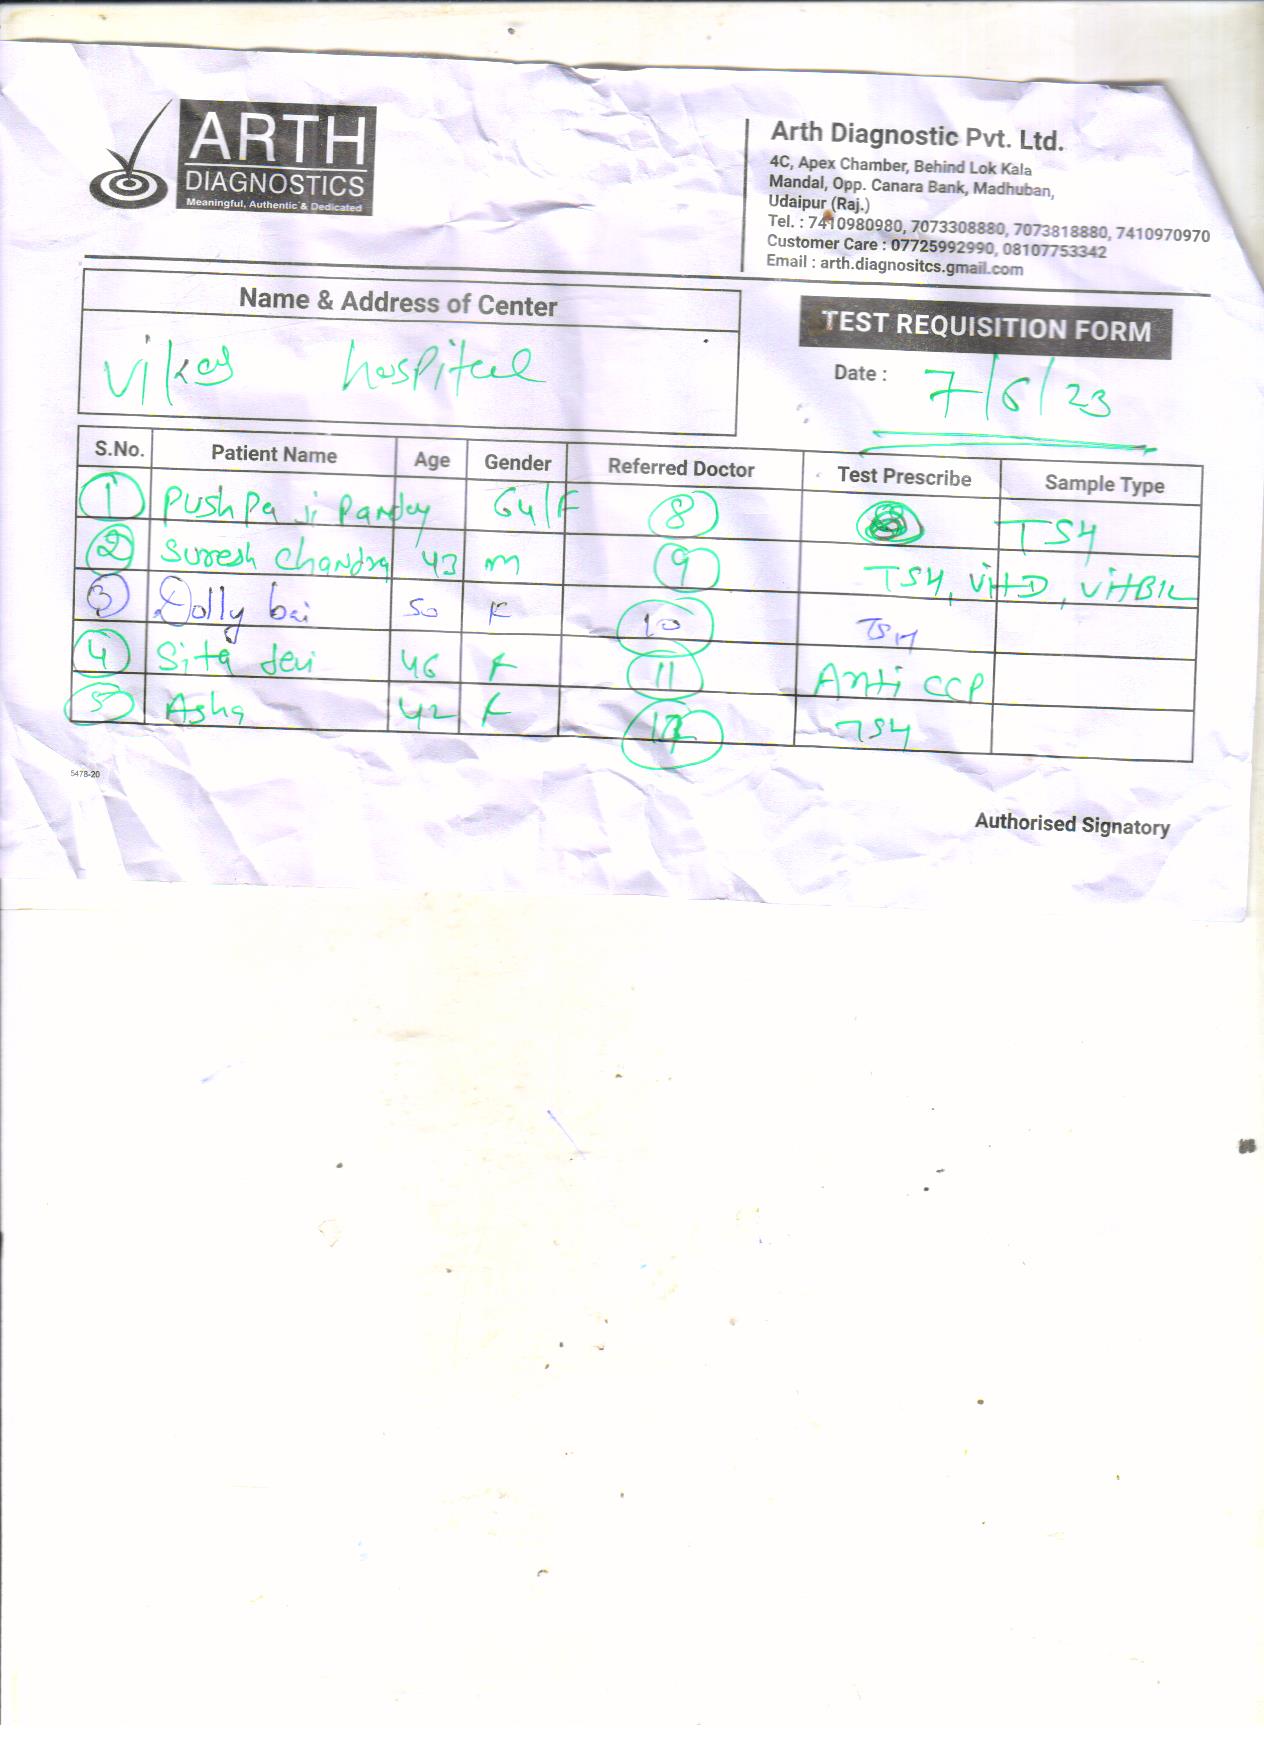 ARTH
DIAGNOSTICS
Meaningful, Authentic & Dedicated
Arth Diagnostic Pvt. Ltd.
4C, Apex Chamber, Behind Lok Kala
Mandal, Opp. Canara Bank, Madhuban,
Udaipur (Raj.)
Tel. : 7410980980, 7073308880, 7073818880, 7410970970
Customer Care : 07725992990, 08107753342
Email : arth.diagnositcs.gmail.com
Name & Address of Center
Vikas hospital
TEST REQUISITION FORM
Date : 7/6/23
S.No. Patient Name Age Gender Referred Doctor Test Prescribe Sample Type
1 Pushpa ji Panday 64/F 8 TSH
2 Suresh Chandra 43 m 9 TSH, VitD, VitB12
3 Dolly bai 50 F 10 TSH
4 Sita devi 46 F 11 Anti CCP
5 Asha 42 F 12 TSH
5478-20
Authorised Signatory